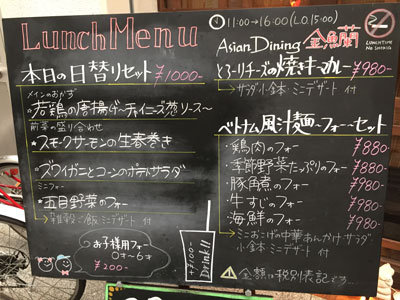 Lunch Menu
本日の日替りセット ¥1000-
メインのおかず
・若鶏の唐揚げ〜チャイニーズ葱ソース〜
前菜の盛り合わせ
・スモークサーモンの生春巻き
・ズワイガニとコーンのポテトサラダ
ミニフォー
・五目野菜のフォー
〜雑穀ご飯、ミニデザート 付
お子様用フォー
0才〜6才
¥200-
+¥100-
Drink!!
11:00→16:00 (L.O.15:00)
Asian Dining 金魚蘭
LUNCHTIME
No SMOKING
とろーりチーズの焼きキーマカレー ¥980-
〜サラダ小鉢・ミニデザート 付
ベトナム風汁麺-フォー-セット
・鶏肉のフォー ¥880-
・季節野菜たっぷりのフォー ¥880-
・豚角煮のフォー ¥980-
・牛すじのフォー ¥980-
・海鮮のフォー ¥980-
〜ミニおこげの中華あんかけ・サラダ
小鉢・ミニデザート 付
金額は税別表記です...